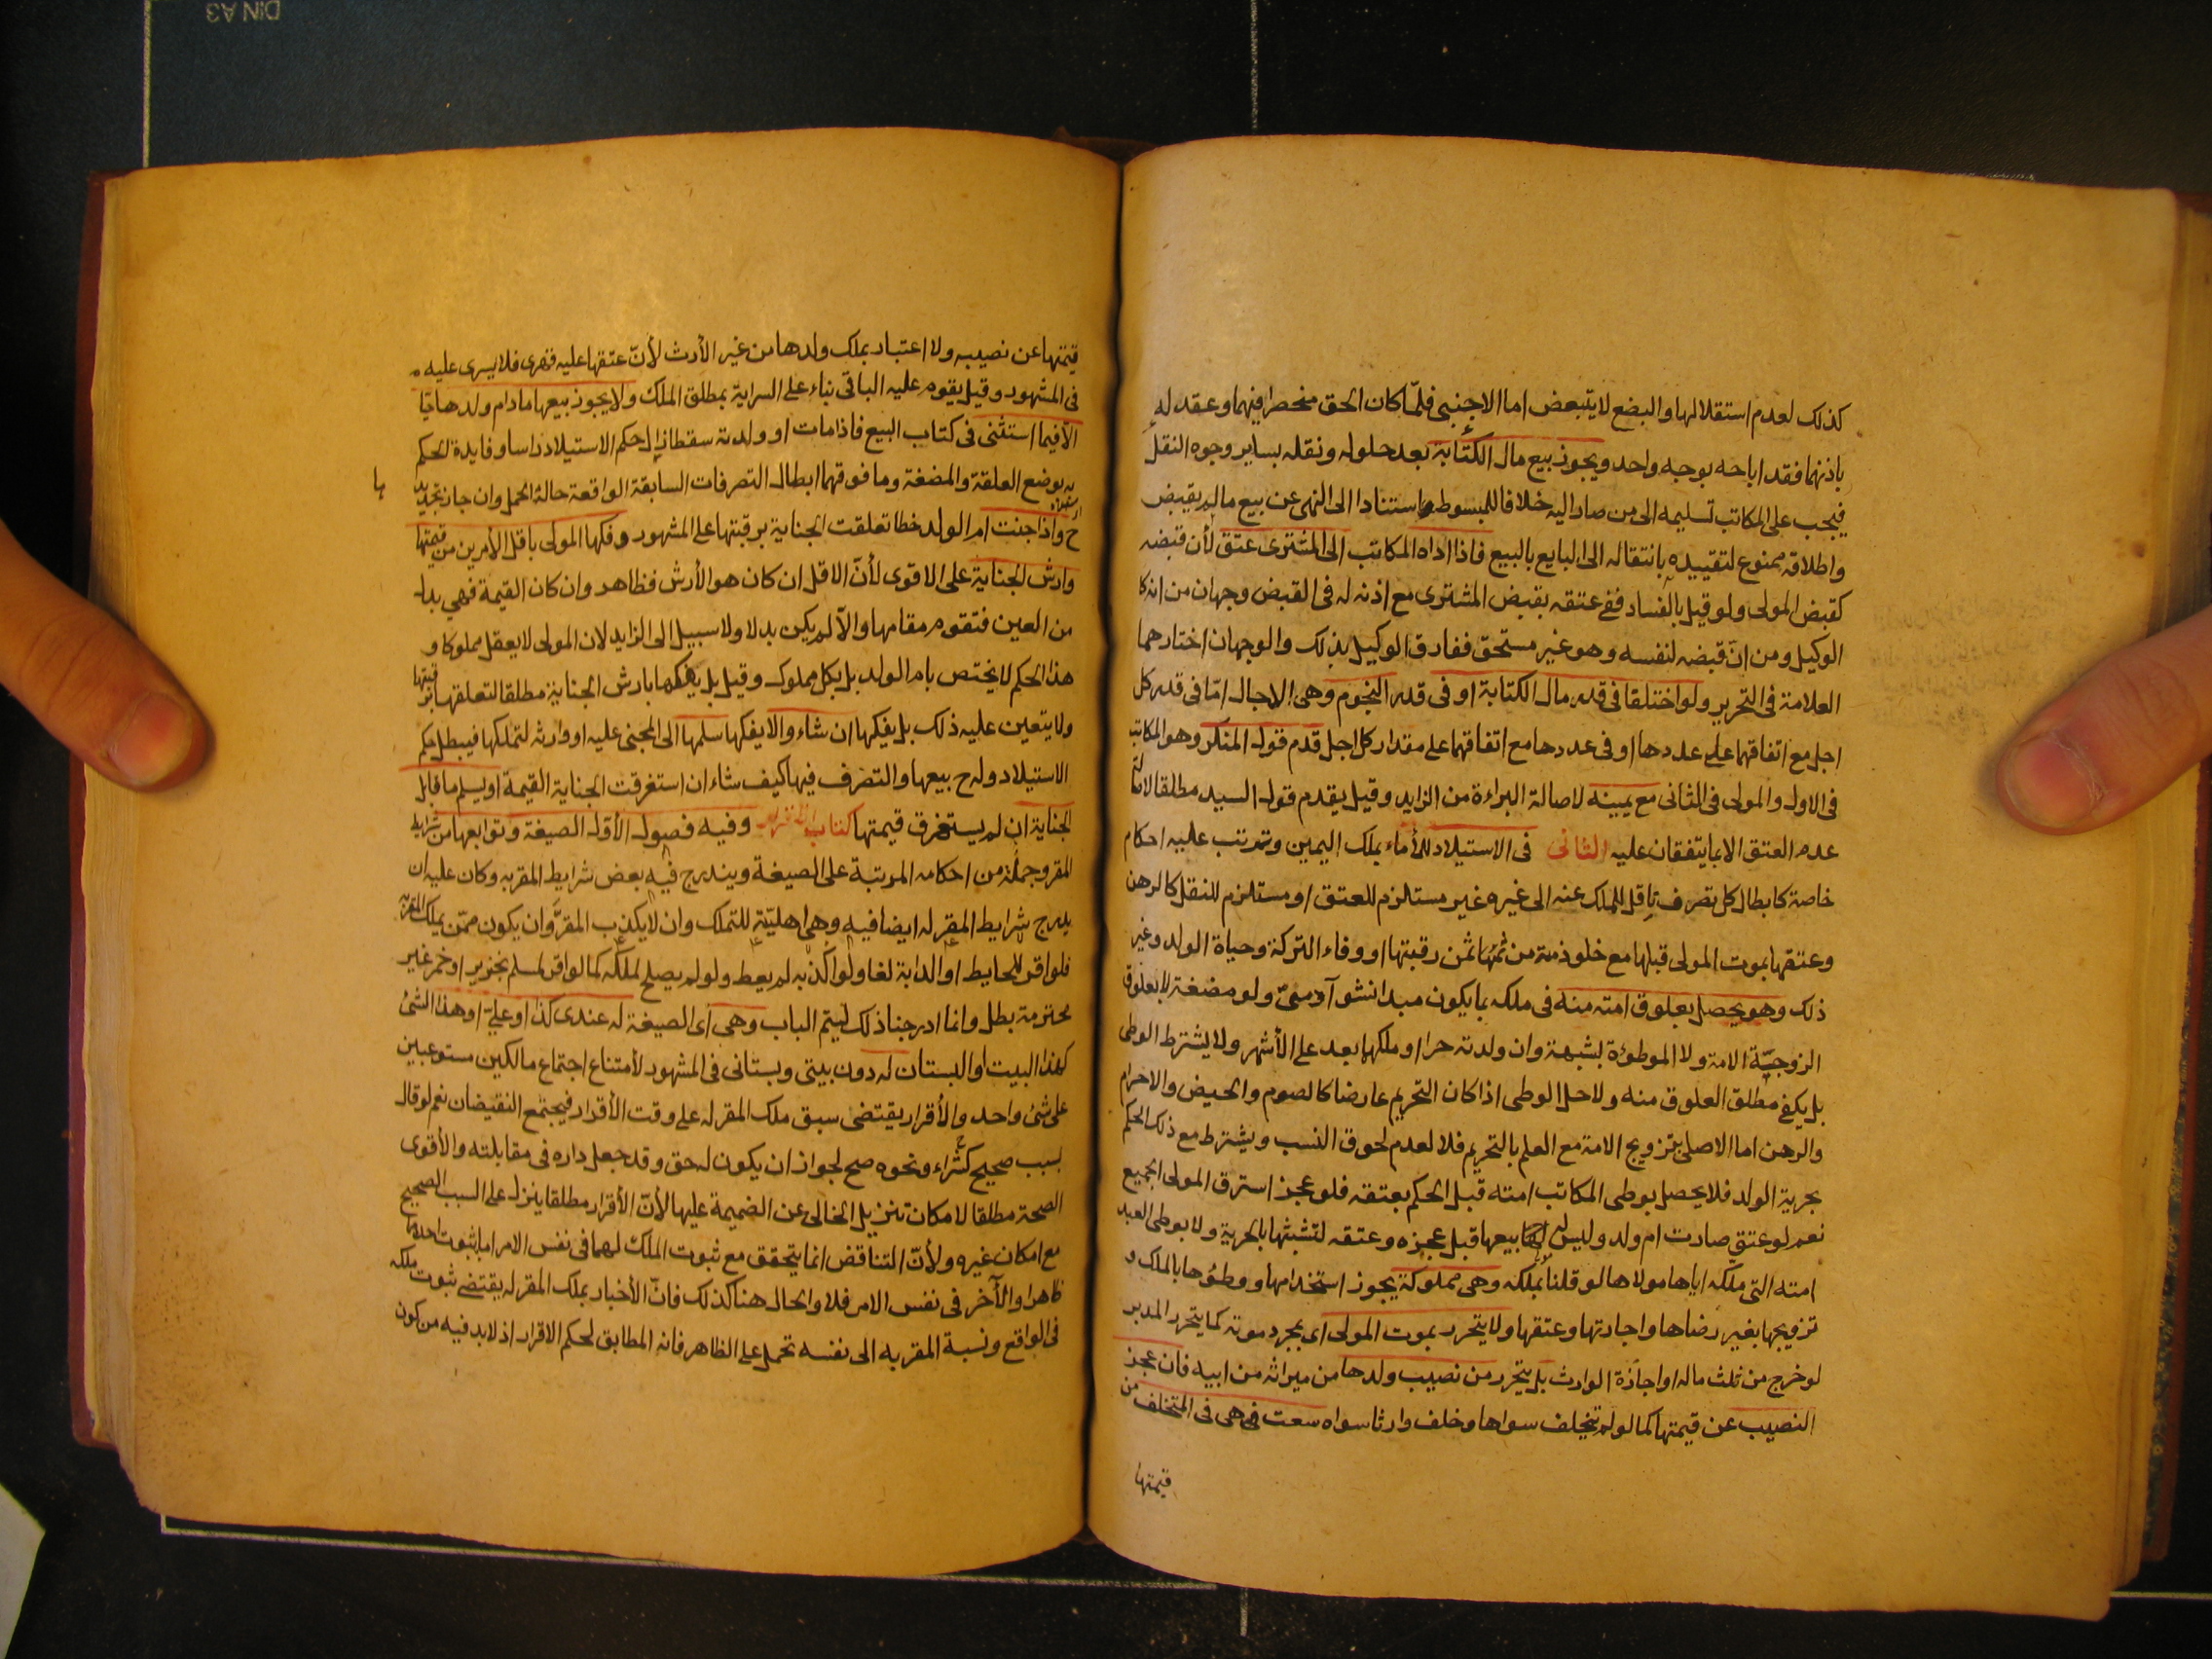 كذلك لعدم استقلالها والبضع لا يتبعض اما الاجنبي فلمّا كان الحق منحصرا فيهما وعقد له
باذنهما فقد اباحه بوجه واحد ويجوز بيع مال الكتابة بعد حلوله ونقله بساير وجوه النقل
فيجب على المكاتب تسليمه الى من صار اليه خلافا للمبسوط استنادا الى النهى عن بيع ما لم يقبض
واطلاقه ممنوع لتقييده بانتقاله الى البايع بالبيع فاذا اداه المكاتب الى المشترى عتق لأن قبضه
كقبض المولى ولو قيل بالفساد ففى عتقه بقبض المشترى مع اذنه له فى القبض وجهان من انه كا
الوكيل ومن انّ قبضه لنفسه وهو غير مستحق ففارق الوكيل بذلك والوجهان اختارهما
العلامة فى التحرير ولو اختلفا فى قدر مال الكتابة او فى قدر النجوم وهى الاجال امّا فى قدر كل
اجل مع اتفاقهما على عددها او فى عددها مع اتفاقهما على مقدار كل اجل قدم قول المنكر وهو المكاتب
فى الاول والمولى فى الثانى مع يمينه لاصالة البراءة من الزايد وقيل يقدم قول السيد مطلقا لاصالة
عدم العتق الا بما يتفقان عليه الثانى فى الاستيلاد للأماء بملك اليمين وتترتب عليه احكام
خاصة كابطال كل تصرف ناقل للملك عنه الى غيره غير مستلزم للعتق او مستلزم للنقل كالرهن
وعتقها بموت المولى قبلها مع خلو ذمته من ثمنها ثمن رقبتها او وفاء التركة وحياة الولد وغير
ذلك وهو يحصل بعلوق امته منه فى ملكه بما يكون مبدا نشو آدمىّ ولو مضغة لا بعلوق
الزوجيّة الامة ولا الموطوءة بشبهة وان ولدته حرا او ملكها بعد على الأشهر ولا يشترط الوطى
بل يكفى مطلق العلوق منه ولا حل الوطى اذا كان التحريم عارضا كالصوم والحيض والاحرام
والرهن اما الاصلى بتزويج الامة مع العلم بالتحريم فلا لعدم لحوق النسب ويشترط مع ذلك الحكم
بحرية الولد فلا يحصل بوطى المكاتب امته قبل الحكم بعتقه فلو عجز استرق المولى الجميع
نعم لو عتق صارت ام ولد وليس له بيعها قبل عجزه وعتقه لتشبثها بالحرية ولا بوطى العبد
امته التى ملكه اياها مولاها لو قلنا بملكه وهى مملوكة يجوز استخدامها ووطؤها بالملك و
تزويجها بغير رضاها واجارتها وعتقها ولا يتحرر بموت المولى اى بمجرد موته كما يتحرر المدبر
لو خرج من ثلث ماله او اجازة الوارث بل يتحرر من نصيب ولدها من ميراثه من ابيه فان عجز
النصيب عن قيمتها كما لو لم تخلف سواها وخلف وارثا سواه سعت هى فى المتخلف من
قيمتها
قيمتها عن نصيبه ولا اعتبار بملك ولدها من غير الأرث لأنّ عتقها عليه قهرى فلا يسرى عليه
فى المشهور وقيل يقوم عليه الباقى بناء على السراية بمطلق الملك ولا يجوز بيعها ما دام ولدها حيّا
الا فيما استثنى فى كتاب البيع فاذا مات او ولدته سقطا زال حكم الاستيلاد راسا وفايدة الحكم
به بوضع العلقة والمضغة وما فوقهما ابطال التصرفات السابقة الواقعة حالة الحمل وان جاز تجديدها
ح واذا جنت ام الولد خطا تعلقت الجناية برقبتها على المشهور وفكها المولى باقل الأمرين من قيمتها
وارش الجناية على الاقوى لأنّ الاقل ان كان هو الأرش فظاهر وان كان القيمة فهى بدل
من العين فتقوم مقامها والا لم يكن بدلا ولا سبيل الى الزايد لان المولى لا يعقل مملوكا و
هذا الحكم لا يختص بام الولد بل بكل مملوك وقيل بل يفكها بارش الجناية مطلقا لتعلقها برقبتها
ولا يتعين عليه ذلك بل يفكها ان شاء والا يفكها سلمها الى المجنى عليه او وارثه لتملكها فيبطل حكم
الاستيلاد وله ح بيعها والتصرف فيها كيف شاء ان استغرقت الجناية القيمة او يسلم ما قابل
الجناية ان لم يستغرق قيمتها كتاب الاقرار وفيه فصول الأول الصيغة وتوابعها من شرايط
المقر وجملة من احكامه المرتبة على الصيغة ويندرج فيه بعض شرايط المقر به وكان عليه ان
يدرج شرايط المقر له ايضا فيه وهى اهليّة للتملك وان لا يكذب المقرّ وان يكون ممّن يملك المقر به
فلو اقر للحايط او الدابة لغا ولو اكذبه لم يعط ولو لم يصلح لملكه كما لو اقر لمسلم بخنزير او خمر غير
محترمة بطل وانما ادرجنا ذلك ليتم الباب وهى اى الصيغة له عندى كذا او علىّ او هذا الشئ
كهذا البيت او البستان له دون بيتى وبستانى فى المشهور لأمتناع اجتماع مالكين مستوعبين
على شئ واحد والأقرار يقتضى سبق ملك المقر له على وقت الأقرار فيجتمع النقيضان نعم لو قال
بسبب صحيح كشراء ونحوه صح لجواز ان يكون له حق وقد جعل داره فى مقابلته والأقوى
الصحة مطلقا لامكان تنزيل الخالى عن الضميمة عليها لأنّ الأقرار مطلقا ينزل على السبب الصحيح
مع امكان غيره ولأنّ التناقض انما يتحقق مع ثبوت الملك لهما فى نفس الامر اما بثبوت احدهما
ظاهرا والآخر فى نفس الامر فلا والحال هنا كذلك فانّ الأخبار بملك المقر له يقتضى ثبوت ملكه
فى الواقع ونسبة المقر به الى نفسه تحمل على الظاهر فانه المطابق لحكم الاقرار اذ لا بد فيه من كون